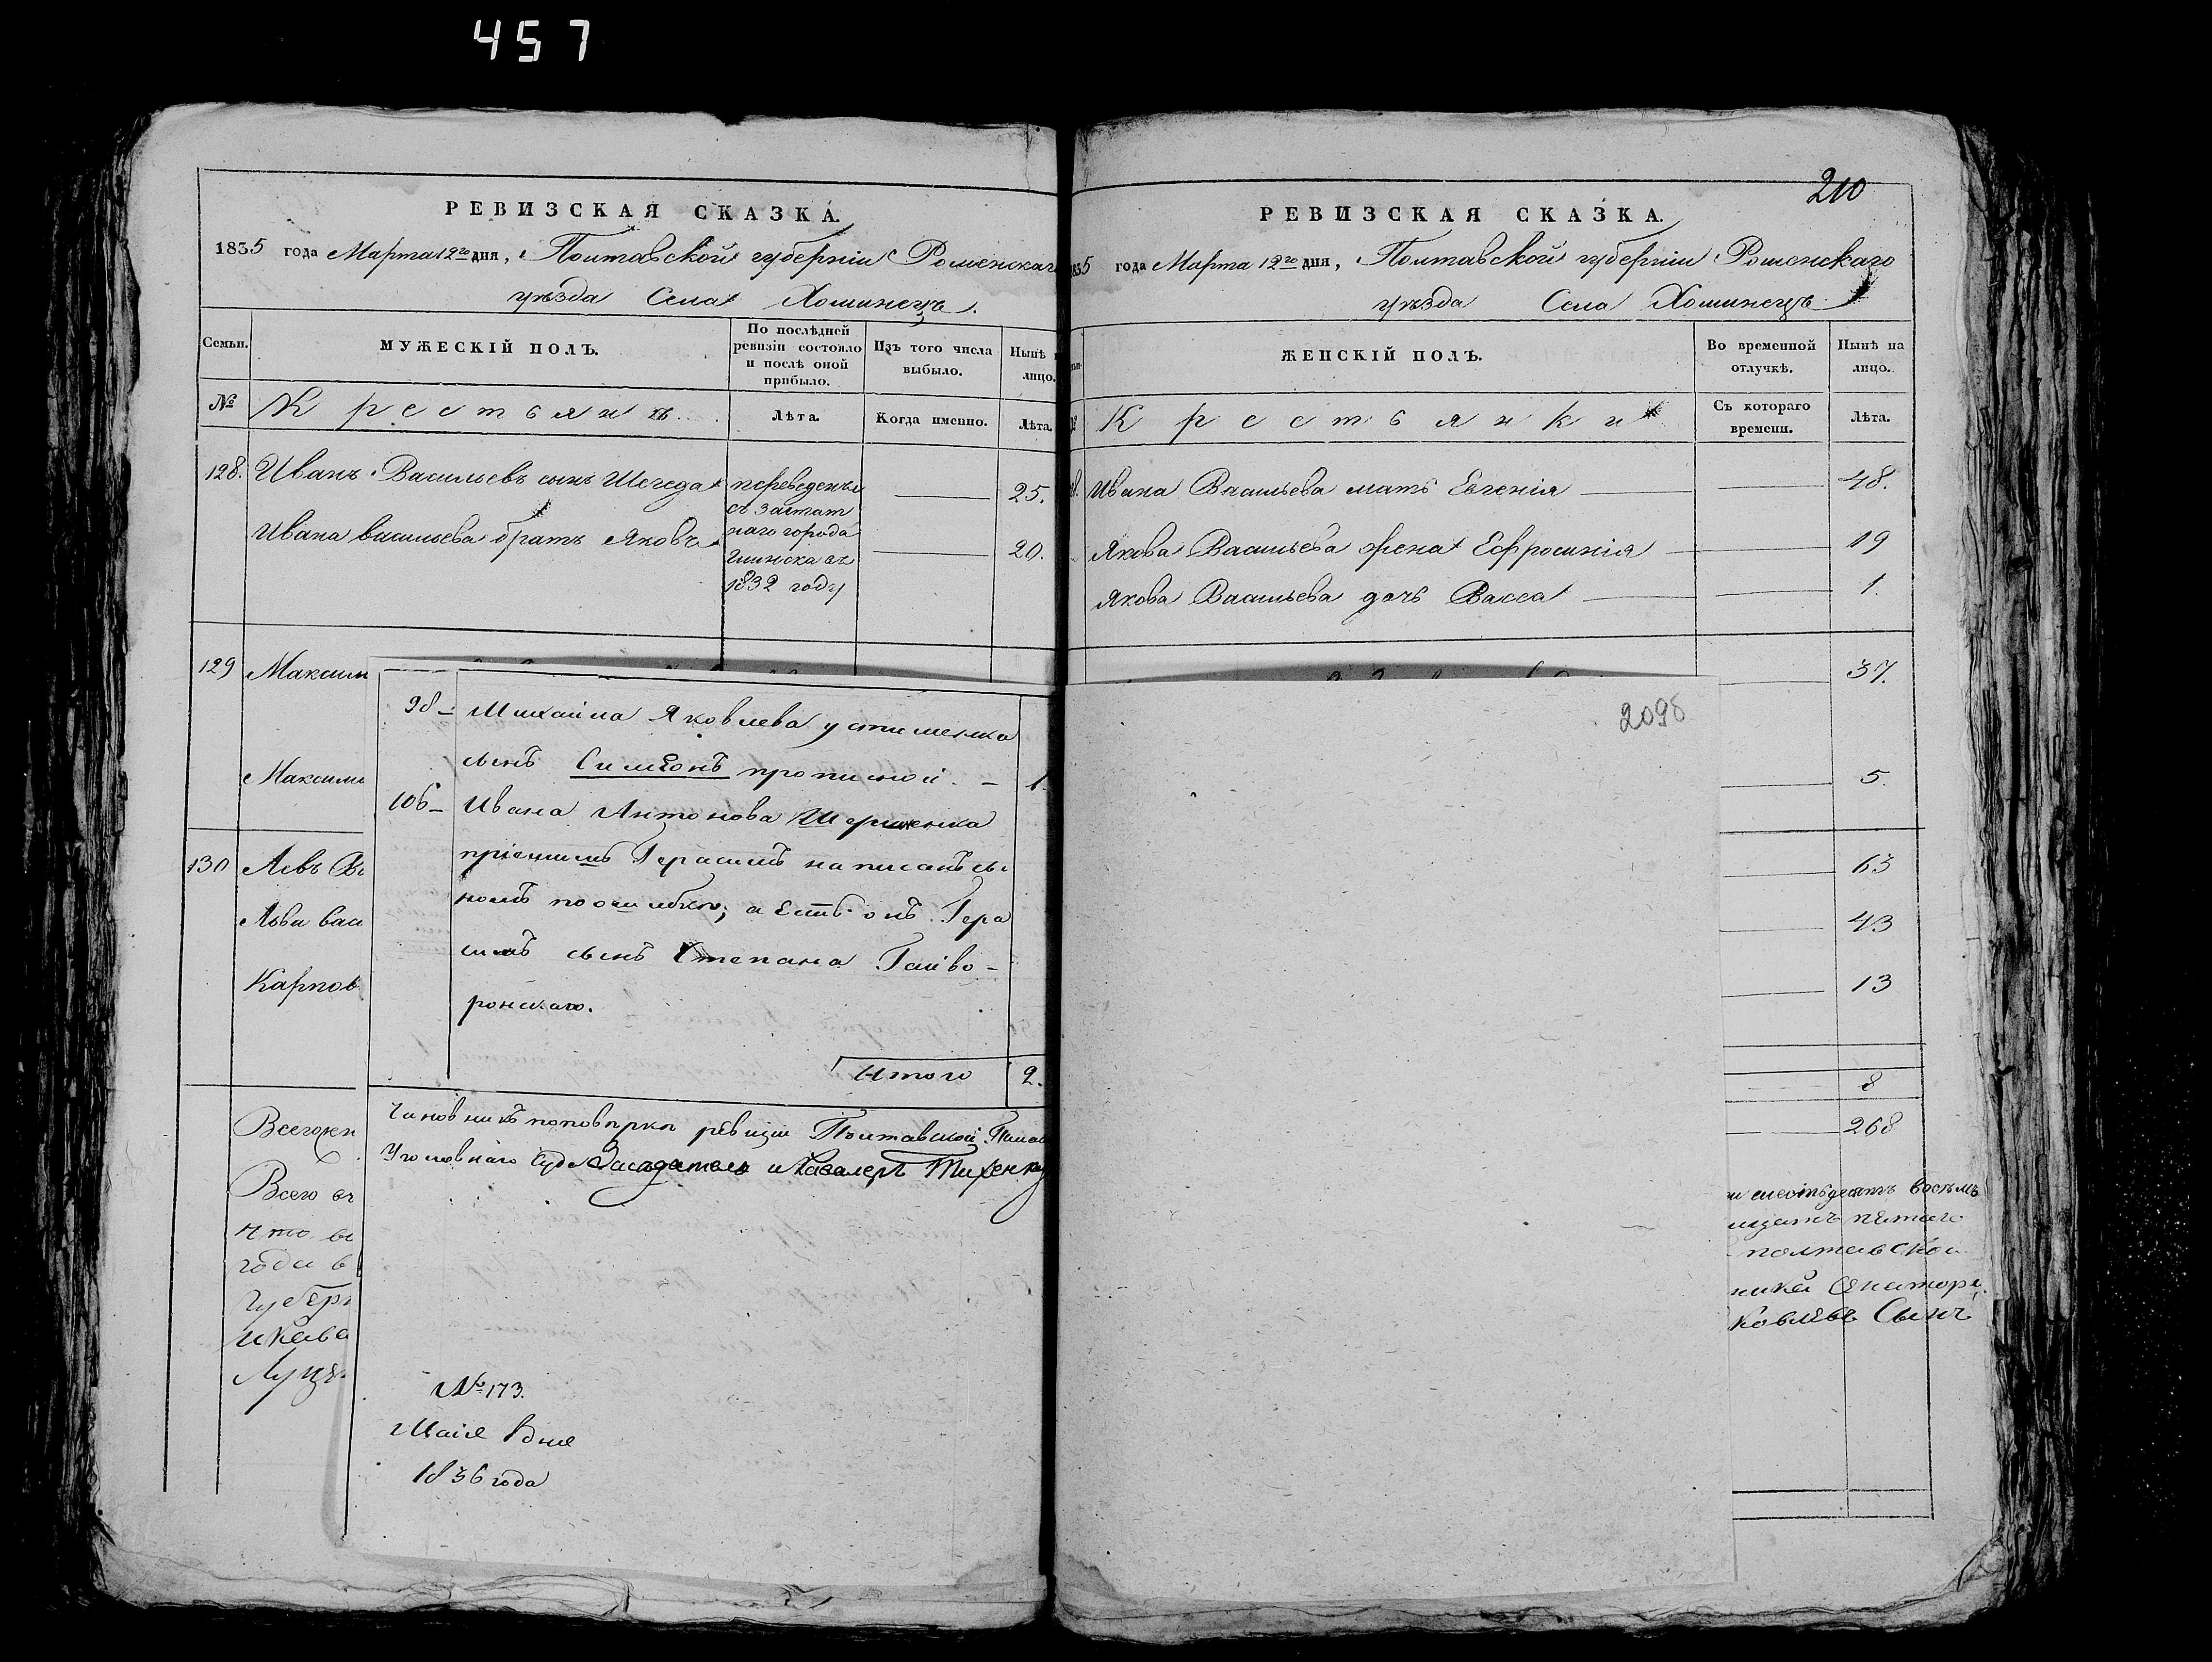 457
РЕВИЗСКАЯ СКАЗКА.
1835 года Марта 12го дня, Полтавской губерніи Роменскаго
уѣзда Села Хоминецъ.
Семьи.
МУЖЕСКІЙ ПОЛЪ.
По послѣдней
ревизіи состояло
и послѣ оной
прибыло.
Изъ того числа
выбыло.
Нынѣ
лицо.
№
Крестьянъ
Лѣта.
Когда именно.
Лѣта.
128. Иванъ Васильевъ сынъ Шегеда
переведены
съ заштат
наго города
Глинска въ
1832 году
25.
Ивана Васильева братъ Яковъ
20.
129 Максим
Максима
130 Левъ Ва
Льва васи
Карпов
Всего
Всего
Что
года в
Губерн
98 — Михайла Яковлева Устименка
сынъ Симеонъ прописной. — 1.
106 — Ивана Антонова
пріемишъ Герасимъ написанъ сы
номъ по ошибкѣ, а есть онъ Гера
симъ сынъ Степана Гайво-
ронскаго.
Итого 2.
Чиновникъ по повѣркѣ ревизіи Полтавской
Уголовнаго Суда Засѣдатель и Кавалеръ
№ 173.
Маія дня
1836 года
210
РЕВИЗСКАЯ СКАЗКА.
835 года Марта 12го дня, Полтавской губерніи Роменскаго
уѣзда Села Хоминецъ
ЖЕНСКІЙ ПОЛЪ.
Во временной
отлучкѣ.
Нынѣ на
лицо.
Крестьянки
Съ котораго
времени.
Лѣта.
Ивана Васильева мать Евгенія 48.
Якова Васильева жена Ефросинія 19
Якова Васильева дочь Васса 1.
37.
2098
5.
63
43
13
8
268
шестьдесятъ восемь
пятаго
полтавской
Сенатора
ковлевъ Сынъ